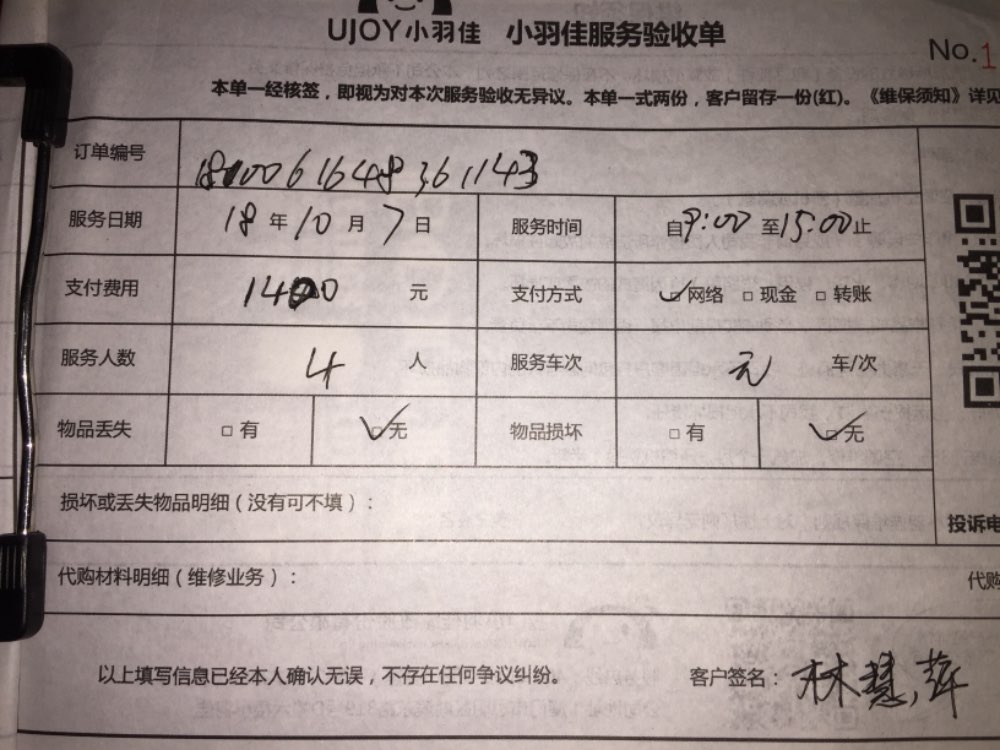 UJOY小羽佳 小羽佳服务验收单
No.1
本单一经核签，即视为对本次服务验收无异议。本单一式两份，客户留存一份(红)。《维保须知》详见
订单编号
服务日期 18 年 10 月 7 日 服务时间 自9:00 至15:00止
支付费用 1400 元 支付方式 ✓网络 □ 现金 □ 转账
服务人数 4 人 服务车次 无 车/次
物品丢失 □ 有 ☑ 无 物品损坏 □ 有 ☑ 无
损坏或丢失物品明细（没有可不填）：
投诉电
代购材料明细（维修业务）：
代购
以上填写信息已经本人确认无误，不存在任何争议纠纷。 客户签名：林慧萍